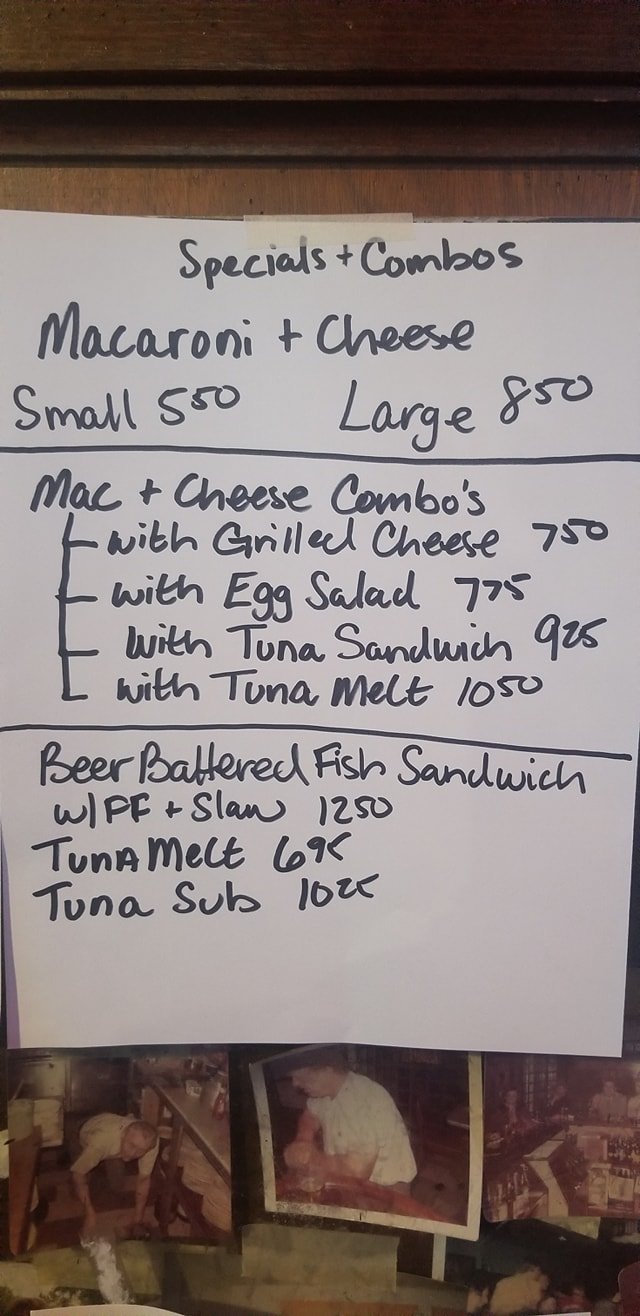 Specials + Combos
Macaroni + Cheese
Small 550 Large 850
Mac + Cheese Combo's
with Grilled Cheese 750
with Egg Salad 775
with Tuna Sandwich 925
with Tuna Melt 1050
Beer Battered Fish Sandwich
w/FF + Slaw 1250
Tuna Melt 695
Tuna Sub 1025